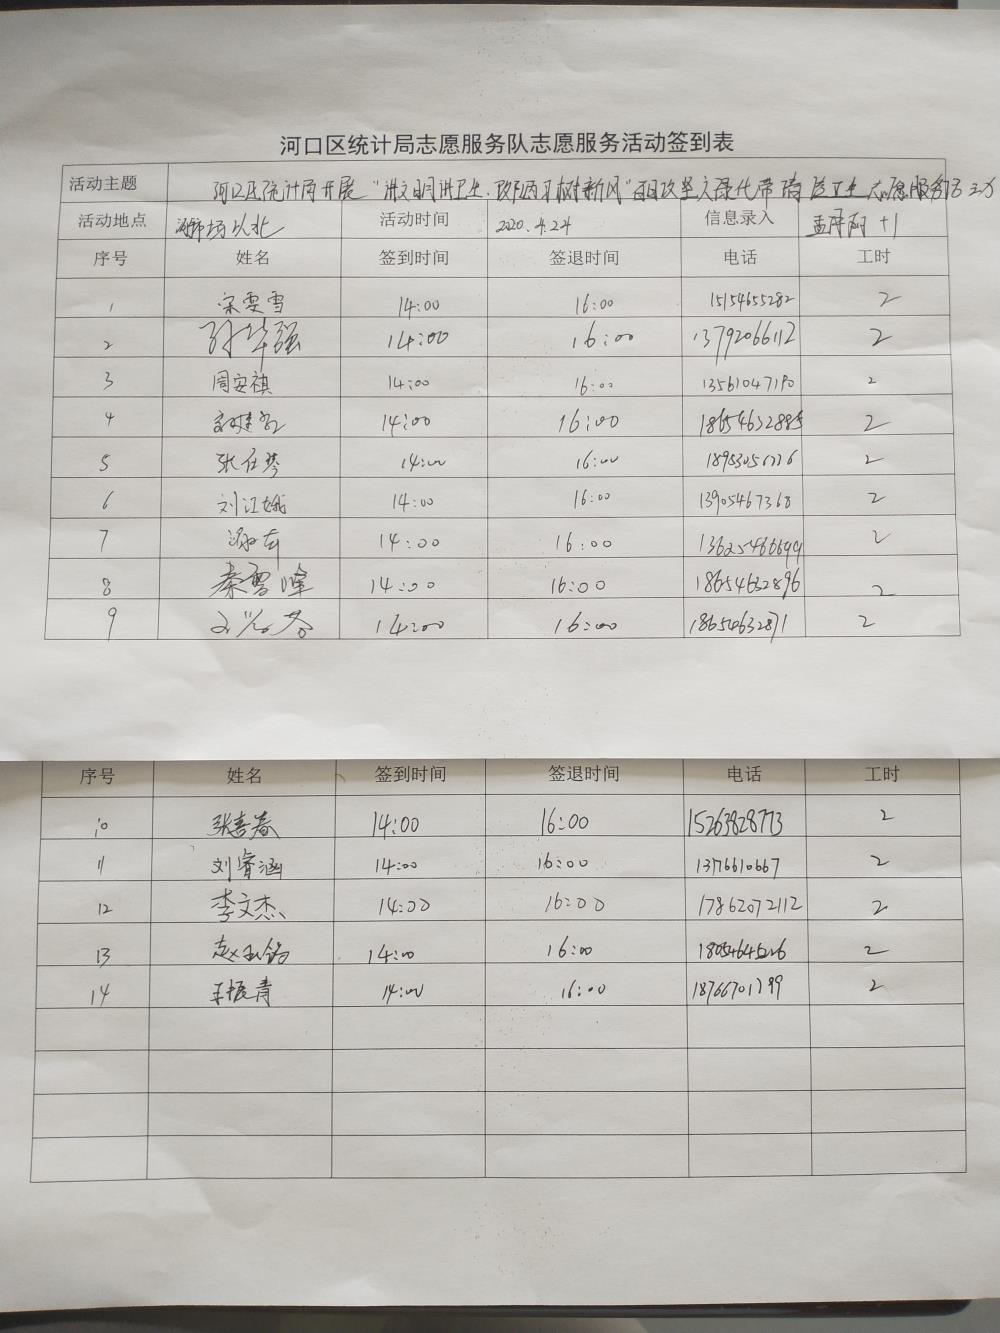 河口区统计局志愿服务队志愿服务活动签到表
活动主题 河口区统计局开展"讲文明讲卫生·改陋习树新风"
活动地点 以北 活动时间 2020.4.24 信息录入 +1
序号 姓名 签到时间 签退时间 电话 工时
1 宋雯雪 14:00 16:00 15154655282 2
2 孙华强 14:00 16:00 13792066112 2
3 周安祺 14:00 16:00 13561047190 2
4 14:00 16:00 18654632885 2
5 张 14:00 16:00 2
6 刘江娥 14:00 16:00 13905467368 2
7 14:00 16:00 13625466699 2
8 秦雪峰 14:00 16:00 18654632896 2
9 14:00 16:00 18654632871 2
序号 姓名 签到时间 签退时间 电话 工时
10 张春 14:00 16:00 15263828773 2
11 刘睿涵 14:00 16:00 1376610667 2
12 李文杰 14:00 16:00 17862072112 2
13 赵 14:00 16:00 2
14 王振青 14:00 16:00 18766701799 2